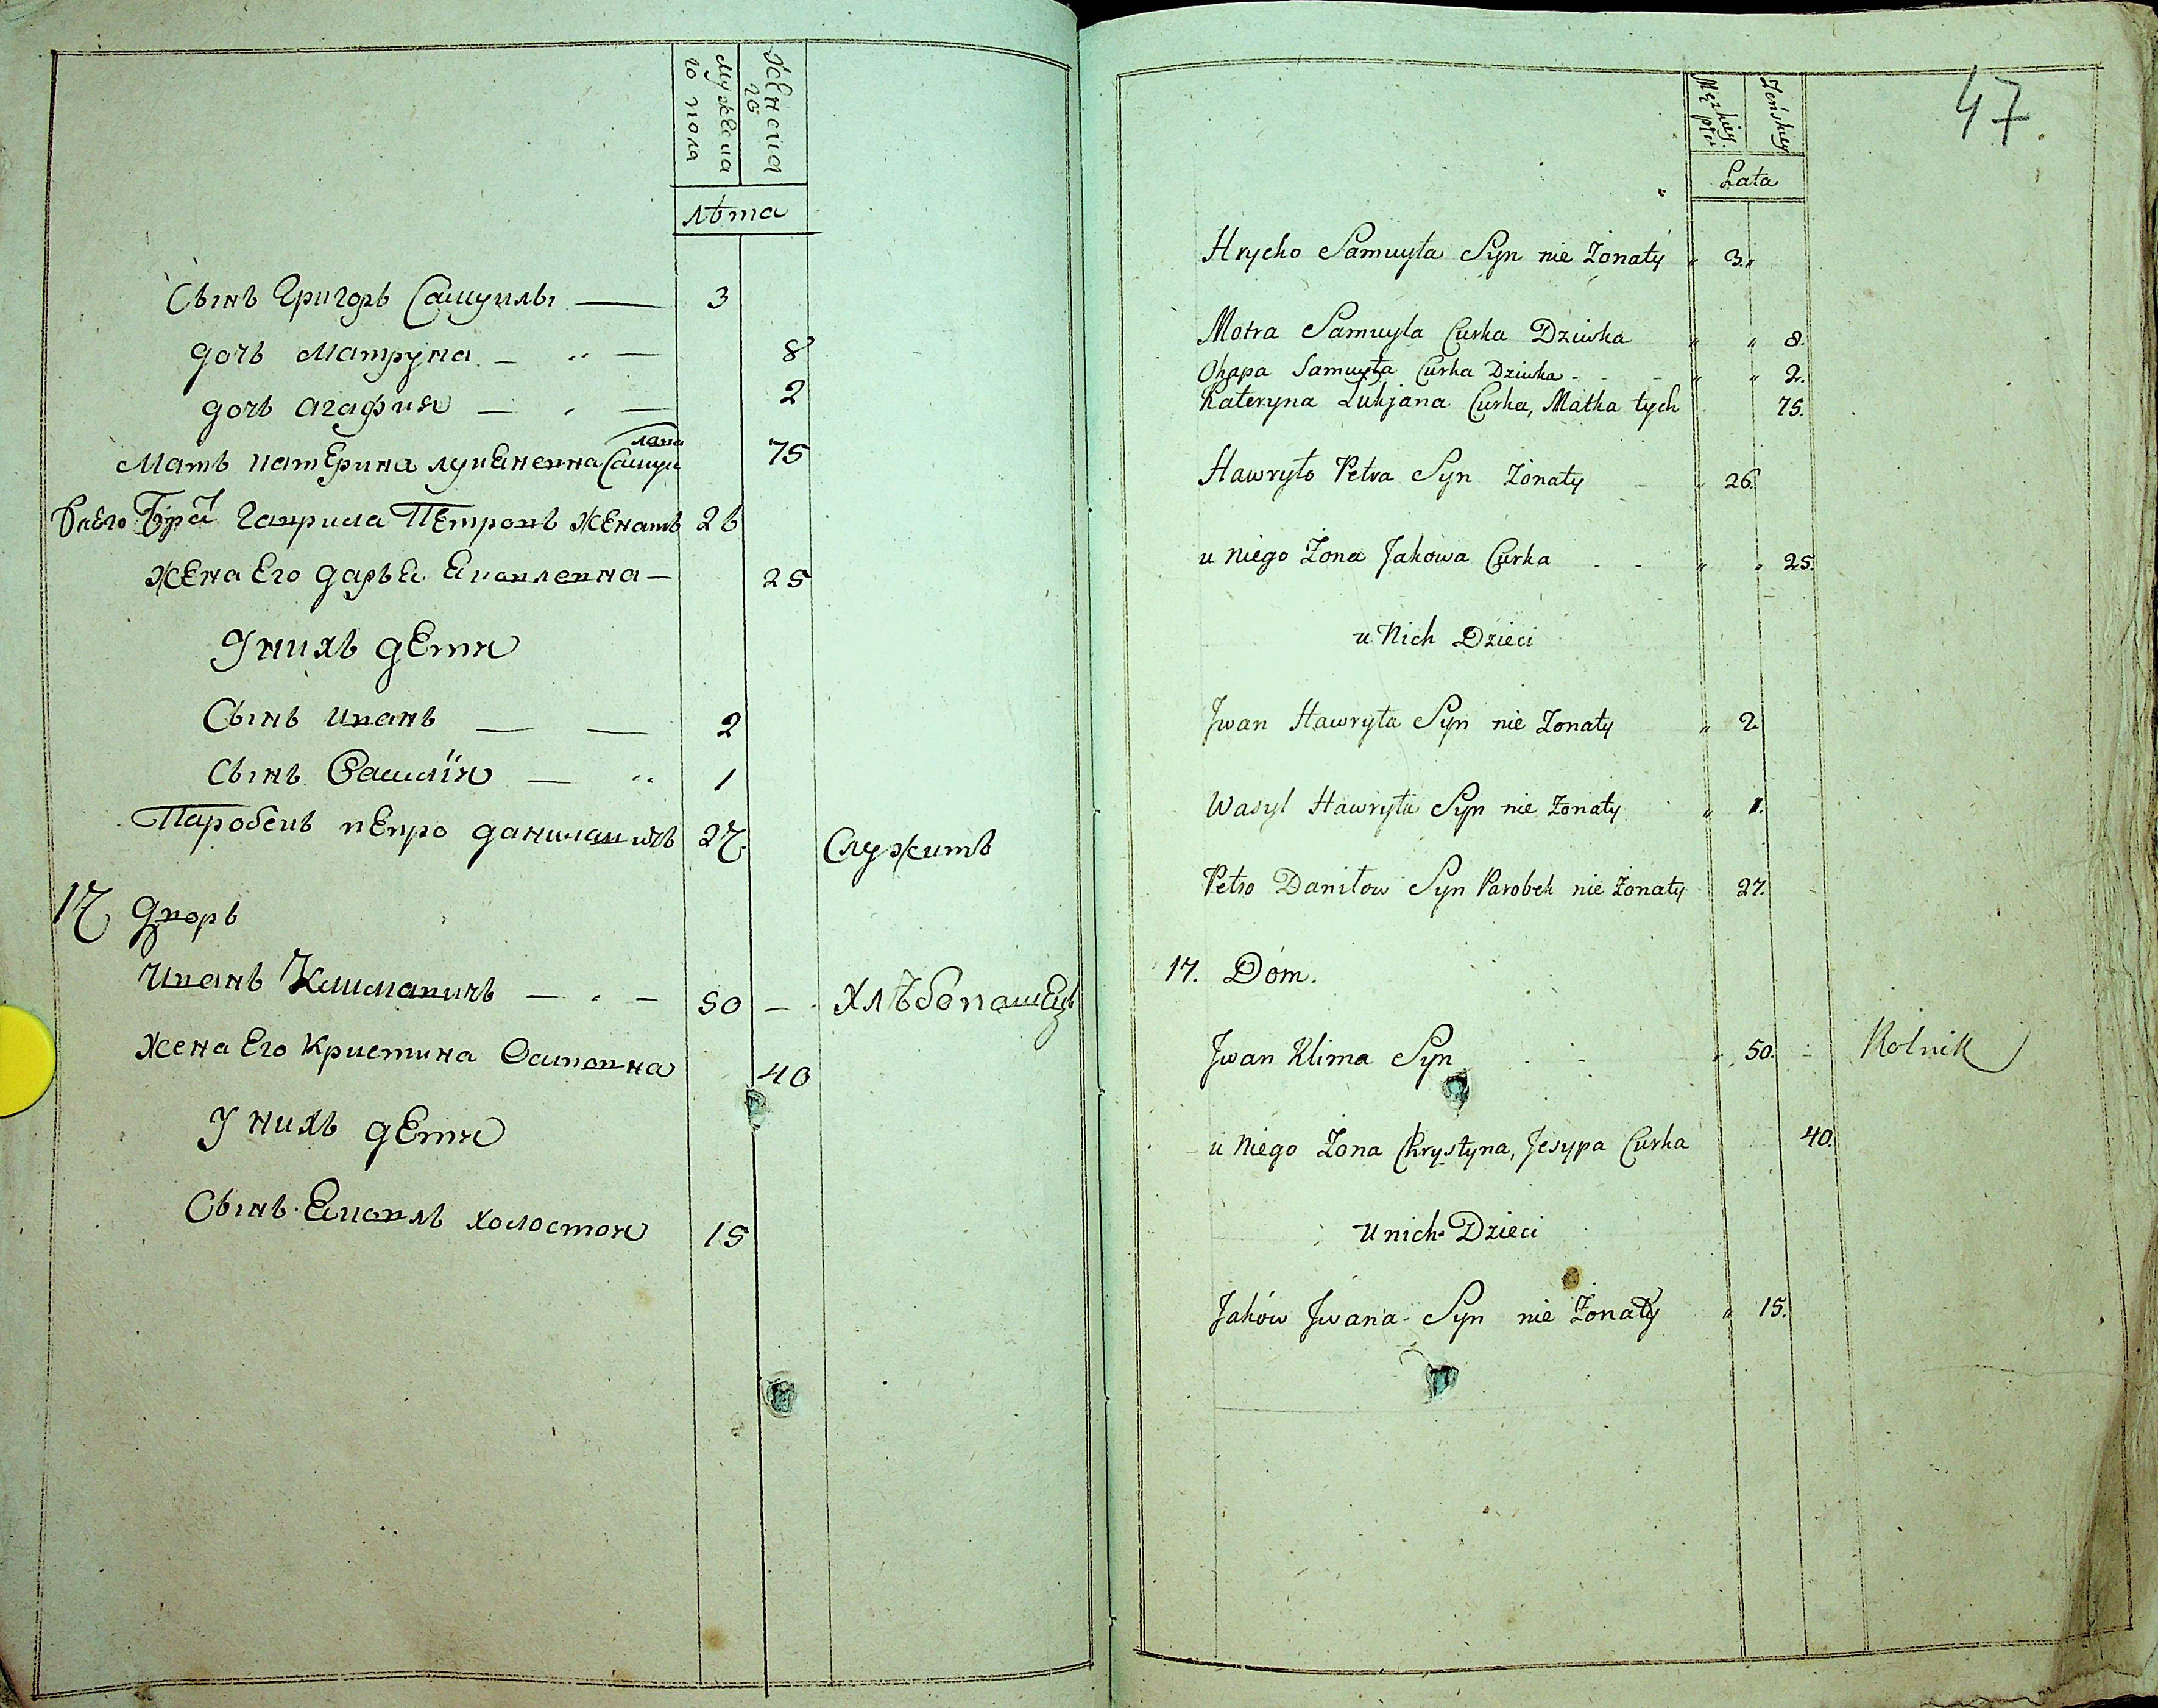 Мужеска
го пола
Женска
го
лѣта
Сынъ Григоръ Самуилы — 3
дочъ Матруна — " — 8
дочъ агафия — " — 2
лова
Мать катерина лукяненна Самуи 75
у него Бра Гаврила Петровъ женатъ 26
жена Его даръя яковлевна — 25
У нихъ дети
Сынъ иванъ — — 2
Сынъ Василій — " 1
Паробокъ петро даниловичъ 27 Служитъ
17 дворъ
Иванъ Климовичъ — " — 50 — хлѣбопашецъ
жена Его кристина Осиповна 40
У нихъ дети
Сынъ яковлъ холостои 15
47
Męzkiey
płci
Zeńskiey
Lata
Hrycko Samuyła Syn nie Żonaty " 3. "
Motra Samuyla Curka Dziwka " " 8.
Ohapa Samuyła Curka Dziwka - - - " " 2.
Kateryna Lukjana Curka, Matka tych 75.
Hawryło Petra Syn Żonaty - " 26.
u niego Żona Jakowa Curka - - " " 25.
u Nich Dzieci
Jwan Hawryła Syn nie Żonaty " 2.
Wasyl Hawryła Syn nie Żonaty " 1.
Petro Daniłow Syn Parobek nie żonaty 27.
17. Dóm.
Jwan Klima Syn - - " 50. - Rolnik
u Niego Żona Chrystyna, Jesypa Curka 40.
u nich Dzieci
Jaków Jwana Syn nie Żonaty " 15.